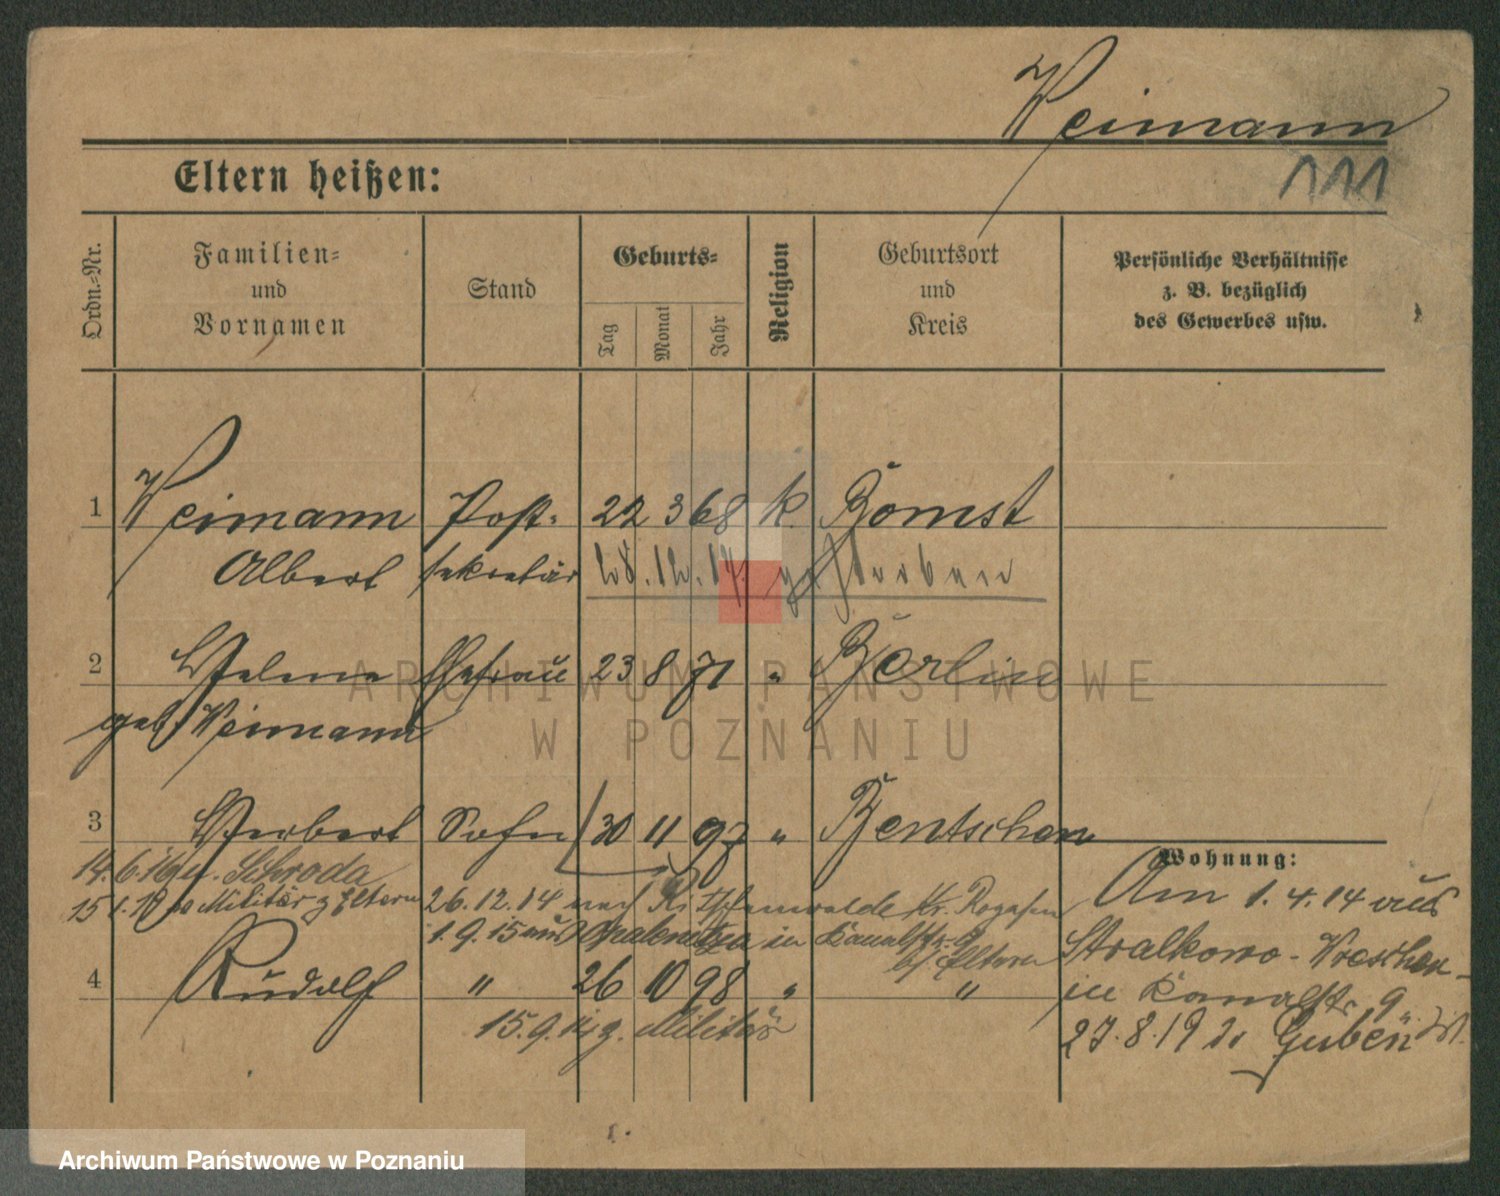 Weimann
111
Eltern heißen:
Ordn.-Nr.
Familien-
und
Vornamen
Stand
Geburts-
Tag
Monat
Jahr
Religion
Geburtsort
und
Kreis
Persönliche Verhältnisse
z. B. bezüglich
des Gewerbes usw.
1 Weimann Post- 22 3 68 k. Bomst
Albert sekretär 28.12.17. gestorben
2 Helene Ehefrau 23 8 71 " Berlin
geb. Weimann
3 Herbert Sohn 30 11 97 " Bentschen
Wohnung:
14.6.16 Schroda
Militär z Eltern
26.12.14 nach Ritschenwalde Kr.
1.9.15 aus in Kanalstr. 9
b/ Eltern
4 Rudolf " 26 10 98 " "
15.9. z. Militär
Am 1.4.14 aus
Stralkowo - Wreschen -
in Kanalstr 9.
27.8.19 Guben
ARCHIWUM PAŃSTWOWE
W POZNANIU
Archiwum Państwowe w Poznaniu